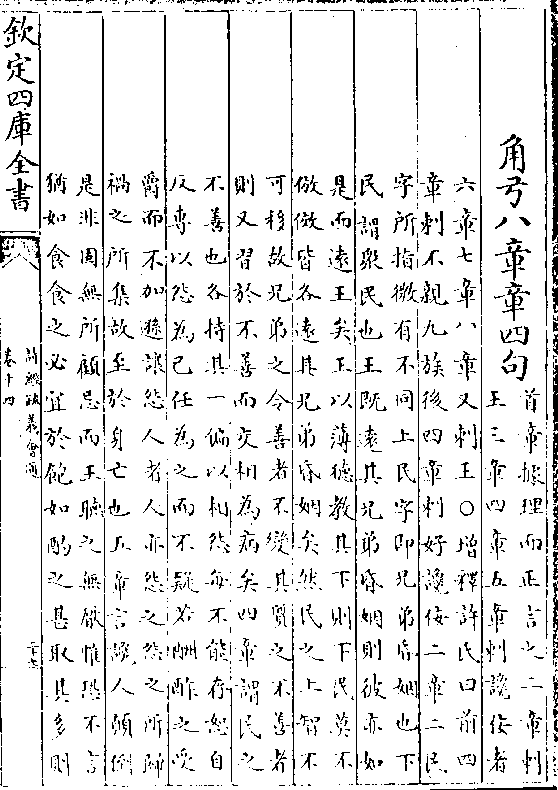 角弓八章章四句
首章據理而正言之二章刺
王三章四章五章刺讒佞者
六章七章八章又刺王○增釋許氏曰前四
章刺不親九族後四章刺好讒佞二章二民
字所指微有不同上民字即兄弟昏姻也下
民謂衆民也王既遠其兄弟昏姻則彼亦如
是而遠王矣王以薄德教其下則下民莫不
倣傚皆各遠其兄弟昏姻矣然民之上智不
可移故兄弟之令善者不變其質之不善者
則又習於不善而交相為病矣四章謂民之
不善也各持其一偏以相怨每不能存恕自
反專以怨為己任為之而不疑若酬酢之受
爵而不加遜讓怨人者人亦怨之怨之所歸
禍之所集故至於身亡也五章言讒人顛倒
是非罔無所顧忌而王聽之無厭惟恐不言
猶如食食之必宜於飽如酌之甚取其多則
欽定四庫全書
詩經疏義會通
卷十四